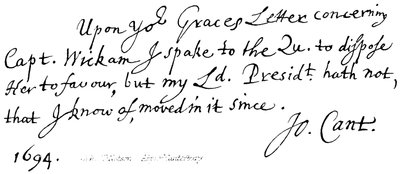 Upon yor Graces Letter concerning
Capt. Wickam I spake to the Qu. to dispose
Her to favour, but my Ld. Presidt. hath not,
that I know of, moved in it since.
Jo. Cant.
1694.